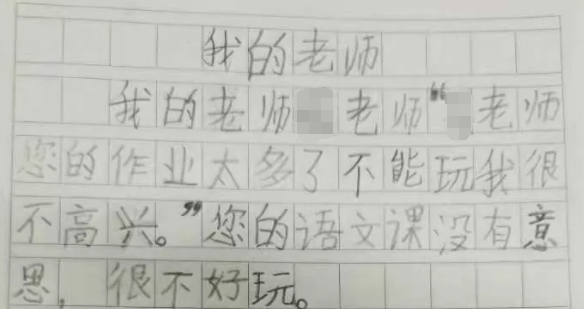 我的老师
我的老师老师“老师
您的作业太多了不能玩我很
不高兴。”您的语文课没有意
思，很不好玩。